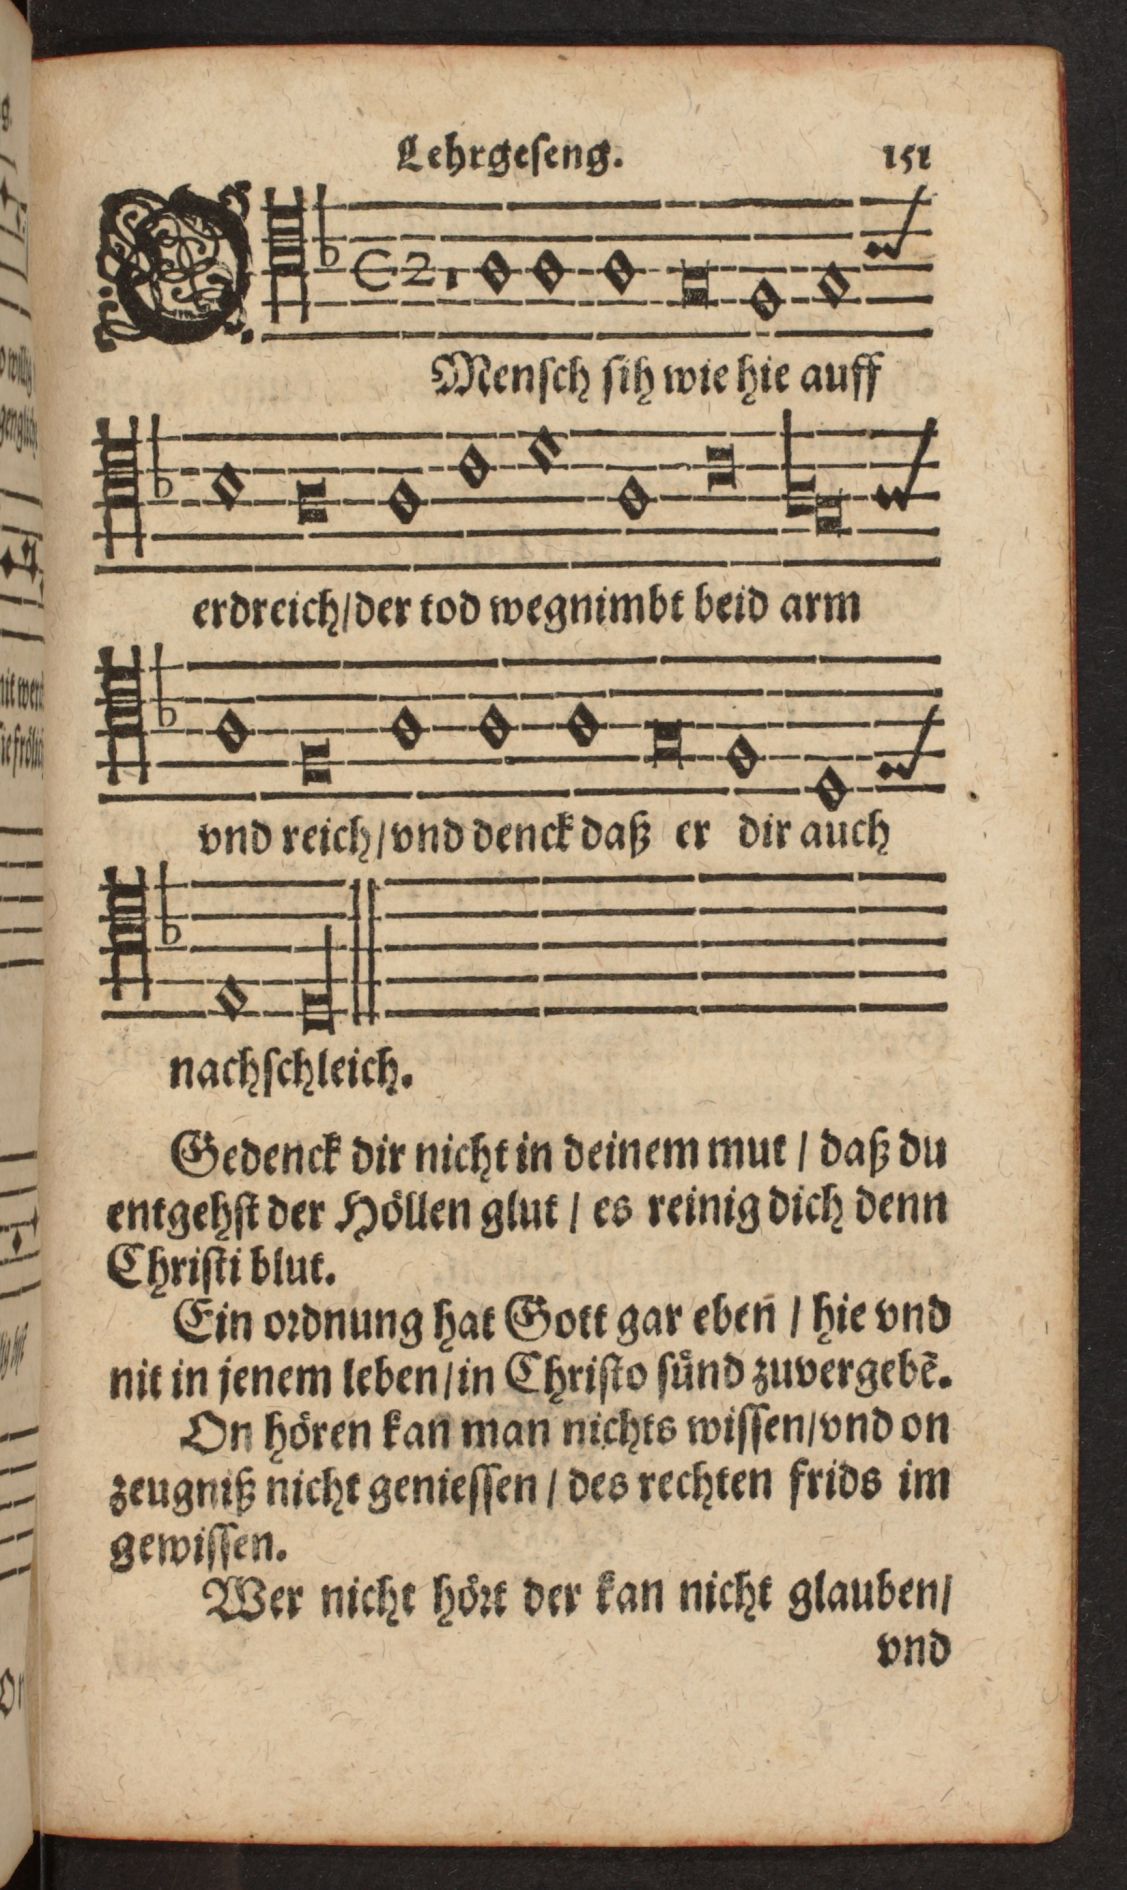 Lehrgeseng. 151
O
Mensch sih wie hie auff
erdreich/der tod wegnimbt beid arm
vnd reich/vnd denck daß er dir auch
nachschleich.
Gedenck dir nicht in deinem mut / daß du
entgehst der Höllen glut / es reinig dich denn
Christi blut.
Ein ordnung hat Gott gar eben / hie vnd
nit in jenem leben/in Christo sünd zuvergebẽ.
On hören kan man nichts wissen/vnd on
zeugniß nicht geniessen / des rechten frids im
gewissen.
Wer nicht hört der kan nicht glauben/
vnd